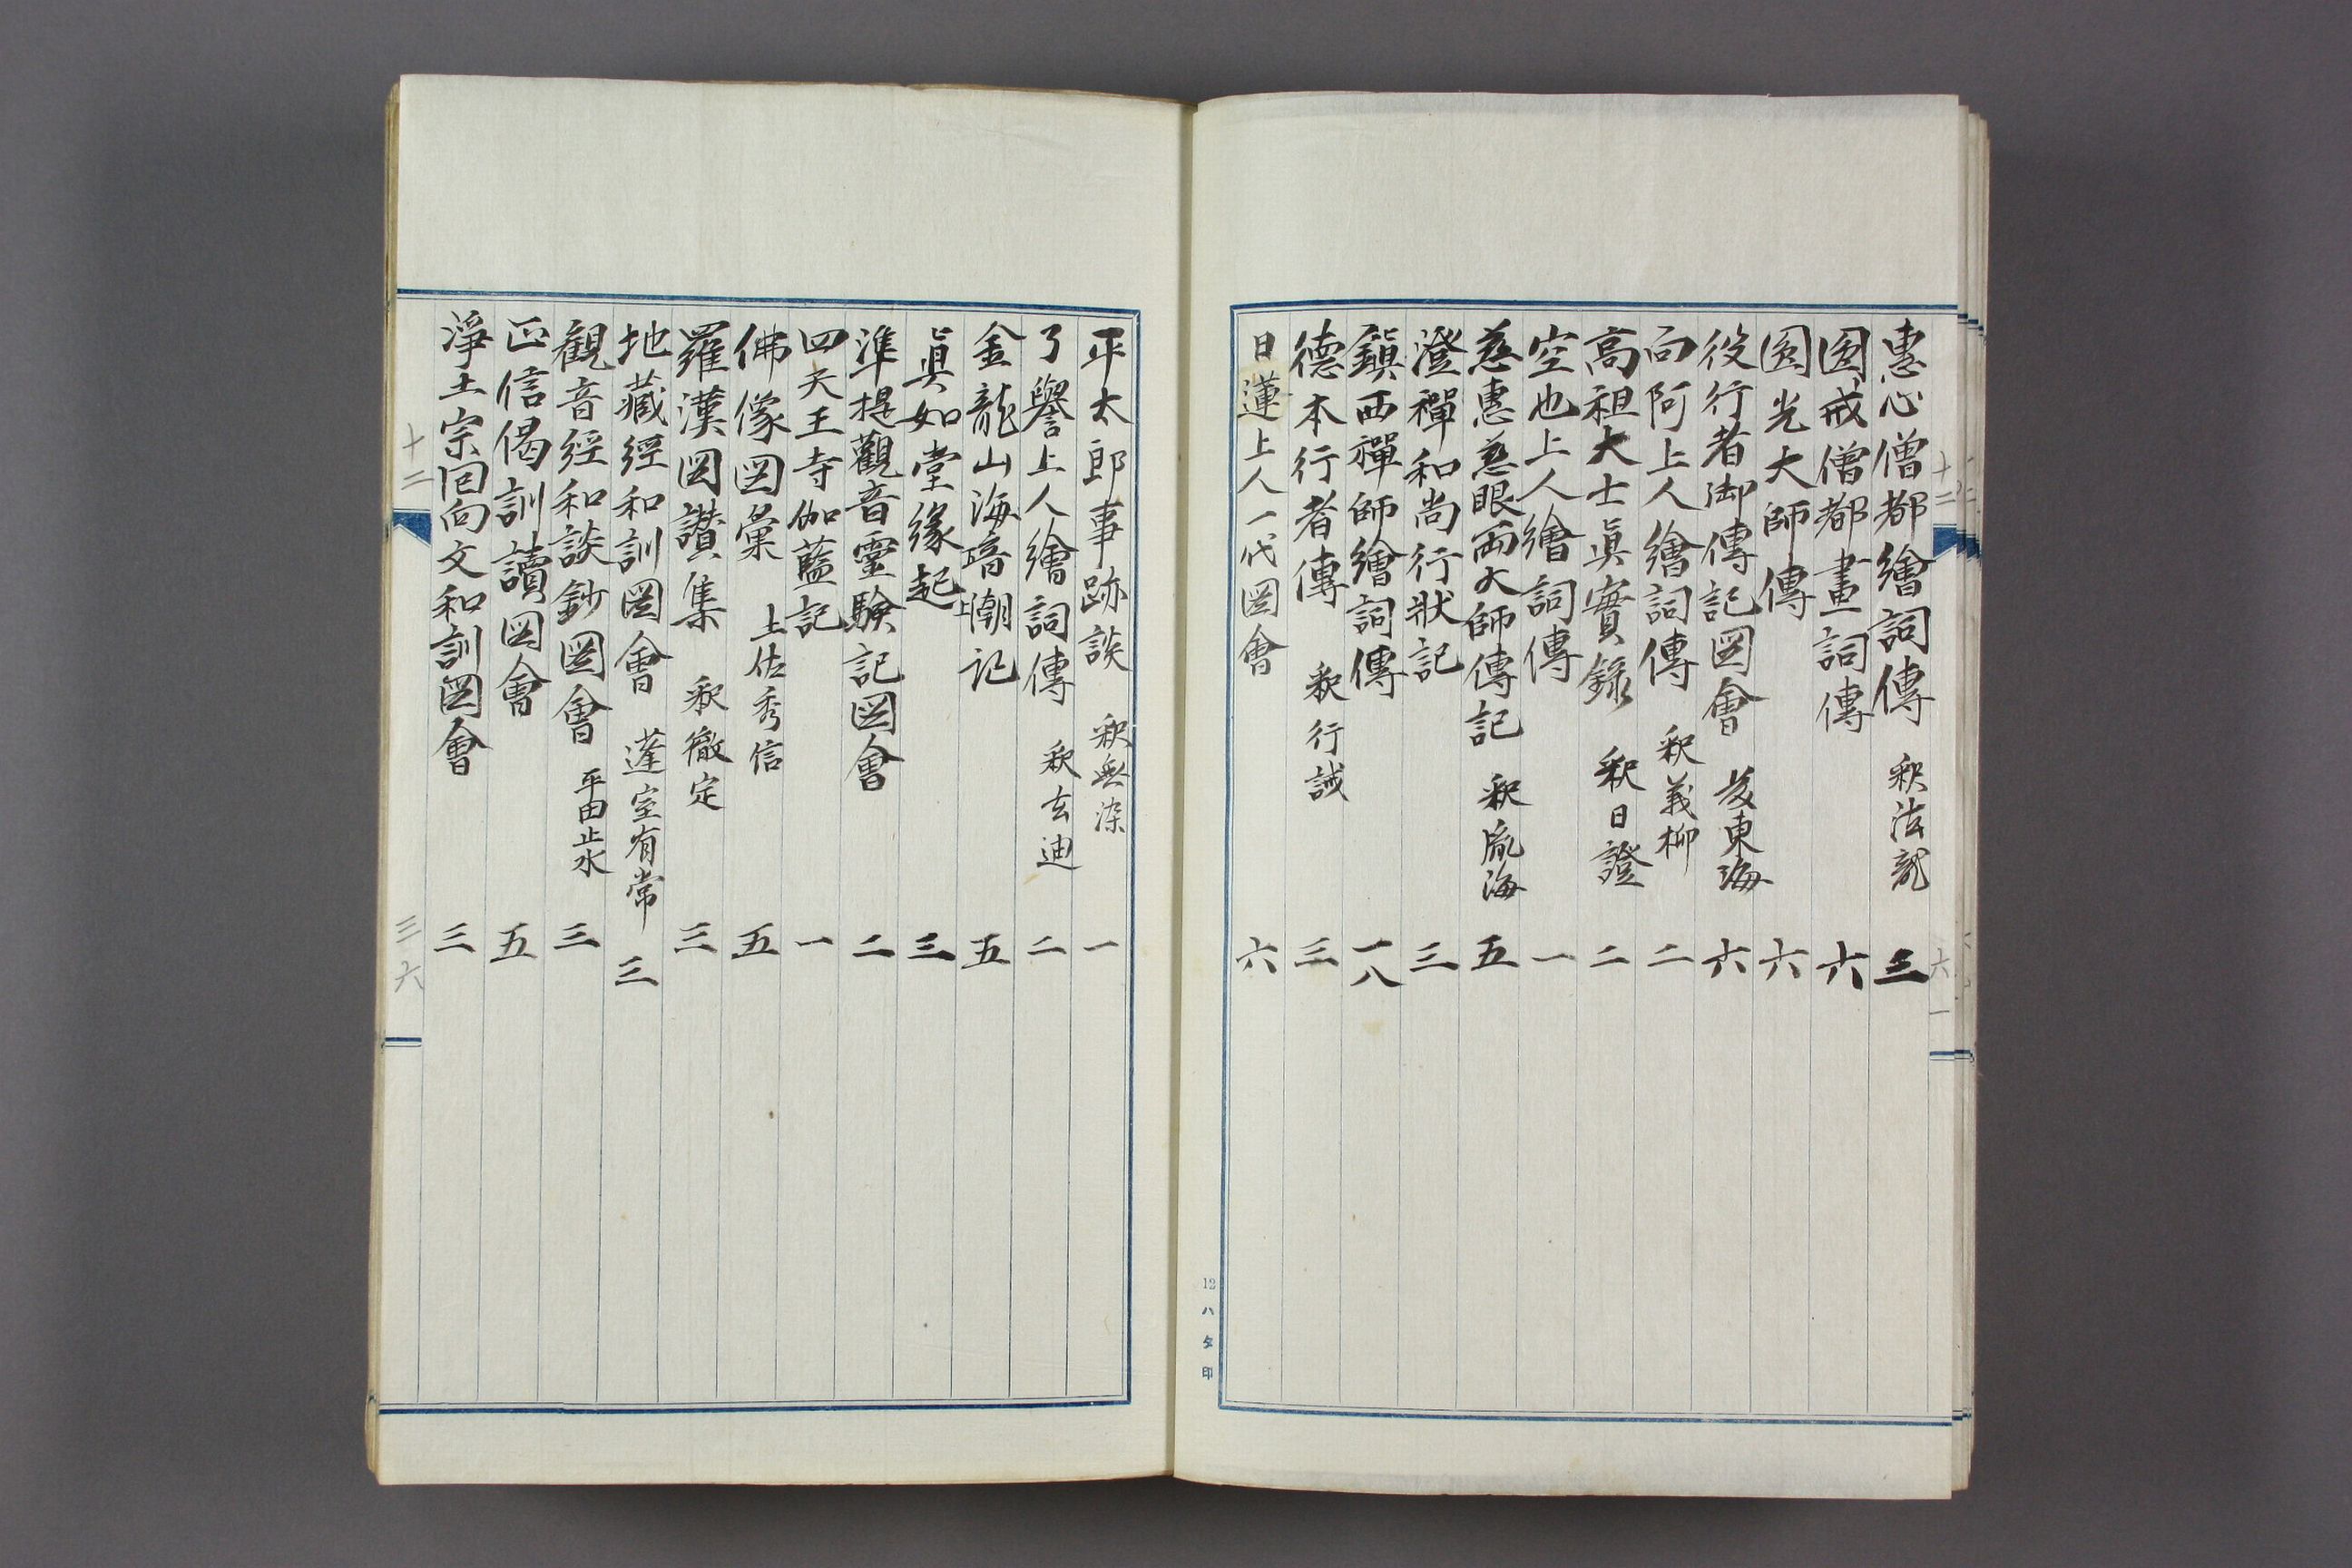 惠心僧都繪詞傳 釈法龍 三
圎戒僧都畫詞傳 六
圎光大師傳 六
役行者御傳記図會 友東海 六
向阿上人繪詞傳 釈義柳 二
高祖大士眞實錄 釈日證 二
空也上人繪詞傳 一
慈惠慈眼両大師傳記 釈胤海 五
澄禪和尚行狀記 三
鎭西禪師繪詞傳 一八
德本行者傳 釈行誡 三
日蓮上人一代図會 六
12 ハタ印
平太郎事跡談 釈無染 一
了譽上人繪詞傳 釈玄迪 二
金龍山海嘯記 五
眞如堂緣起 三
準提觀音靈驗記図會 二
四天王寺伽藍記 一
佛像図彙 土佐秀信 五
羅漢図讃集 釈徹定 三
地藏經和訓図會 蓬室有常 三
観音經和談鈔図會 平田止水 三
正信偈訓讀図會 五
淨土宗回向文和訓図會 三
十二
三六